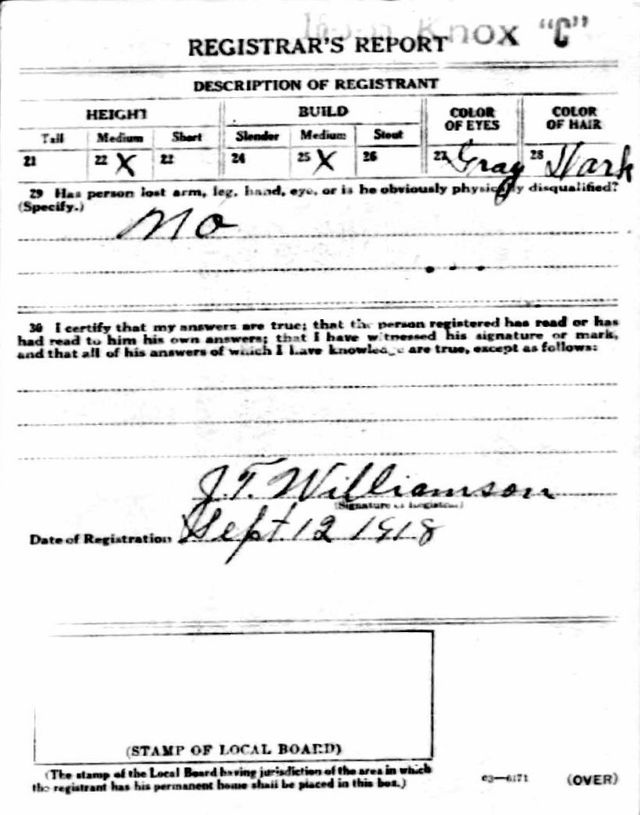 Knox "C"
REGISTRAR'S REPORT
DESCRIPTION OF REGISTRANT
HEIGHT BUILD COLOR OF EYES COLOR OF HAIR
Tall Medium Short Slender Medium Stout
21 22 X 23 24 25 X 26 27 Gray 28 Dark
29 Has person lost arm, leg, hand, eye, or is he obviously physically disqualified?
(Specify.)
No
30 I certify that my answers are true; that the person registered has read or has
had read to him his own answers; that I have witnessed his signature or mark,
and that all of his answers of which I have knowledge are true, except as follows:
J. T. Williamson
(Signature of Registrar)
Date of Registration Sept 12 1918
(STAMP OF LOCAL BOARD)
(The stamp of the Local Board having jurisdiction of the area in which
the registrant has his permanent home shall be placed in this box.)
03—6171 (OVER)